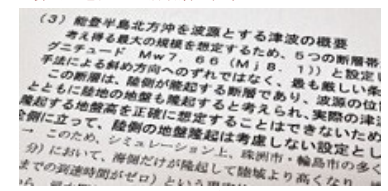 (3)能登半島北方沖を波源とする津波の概要
考え得る最大の規模を想定するため、5つの断層帯
グニチュード Mw7.66(Mj8.1))と設定
手法による斜め方向へのずれではなく、最も厳しい条
この断層は、陸側が隆起する断層であり、波源の位
とともに陸地の地盤も隆起すると考えられ、実際の津
隆起する地盤高を正確に想定することはできないため
全側に立って、陸側の地盤隆起は考慮しない設定とし
→ このため、シミュレーション上、珠洲市・輪島市の多く
分)において、海側だけが隆起して陸域より高くなり
までの到達時間がゼロ)という